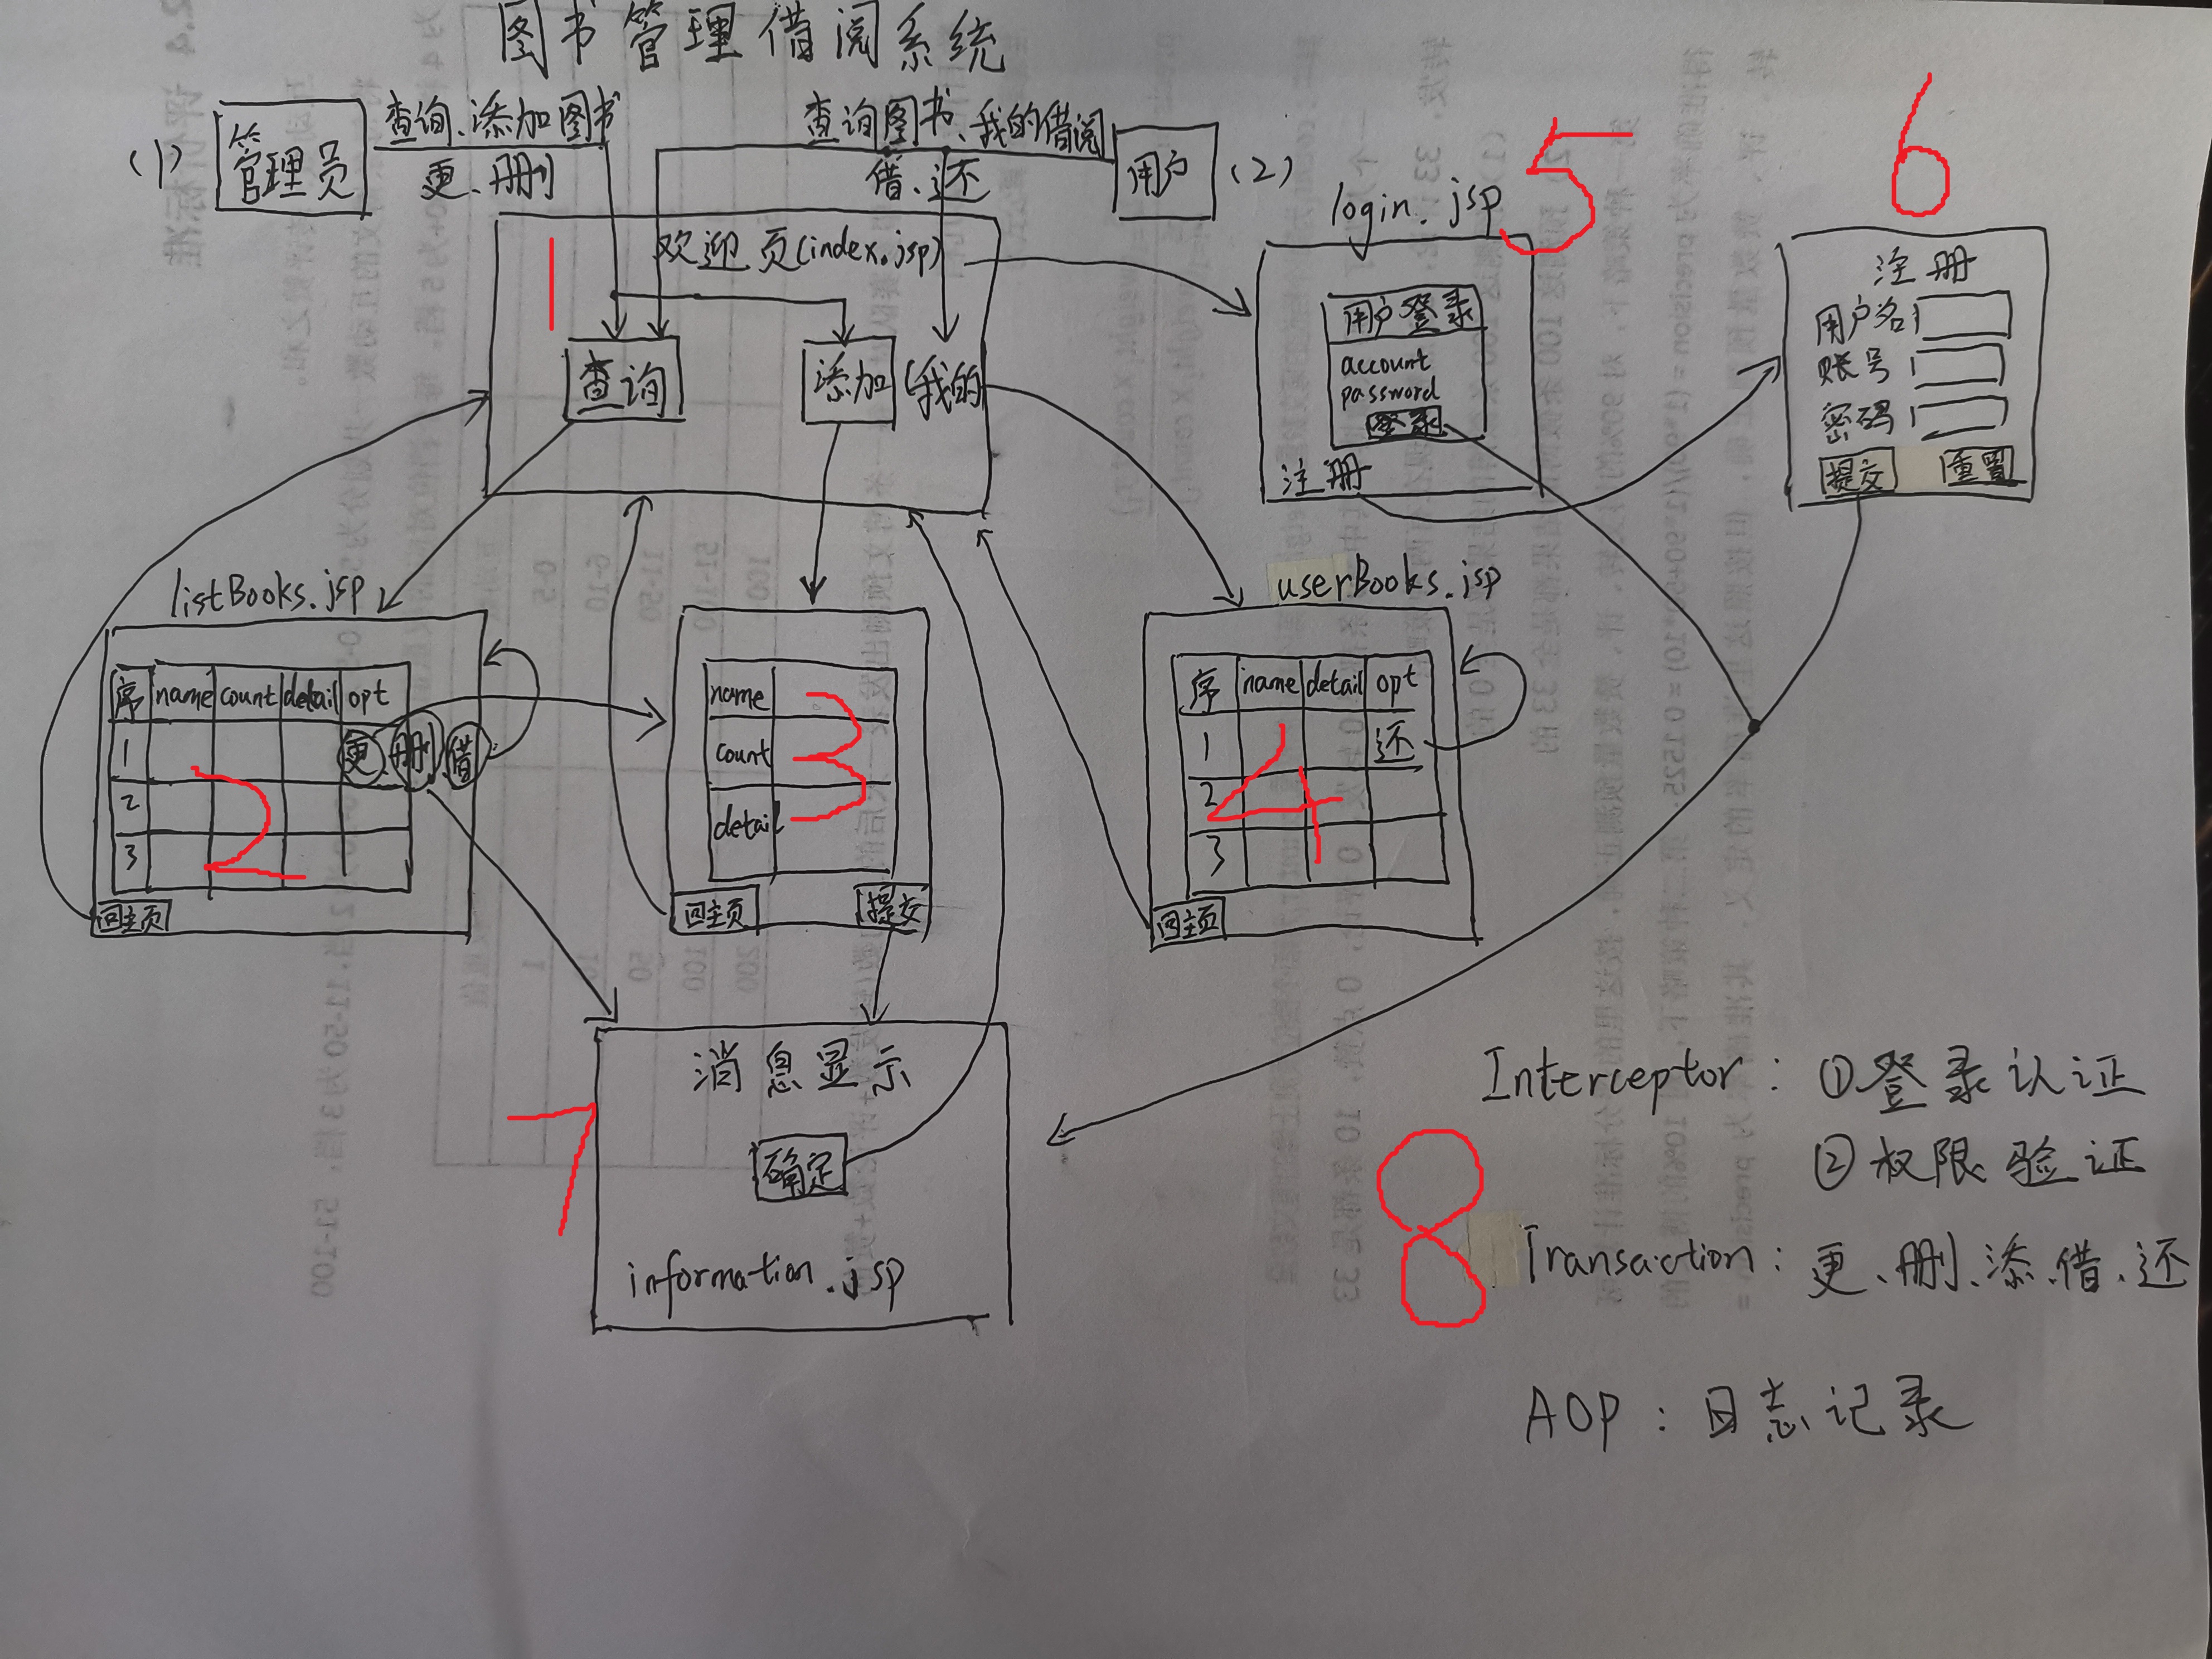 图书管理借阅系统
(1)
管理员
查询、添加图书
更、删
查询图书、我的借阅
借、还
用户
(2)
1
欢迎页(index.jsp)
查询
添加
我的
login.jsp
5
用户登录
account
password
登录
注册
6
注册
用户名
账号
密码
提交 重置
listBooks.jsp
序 name count detail opt
1 更 删 借
2
3
2
回主页
name
count
detail
3
回主页 提交
userBooks.jsp
序 name detail opt
1 还
2
3
4
回主页
7
消息显示
确定
information.jsp
Interceptor: ①登录认证
②权限验证
8
Transaction: 更、删、添、借、还
AOP: 日志记录